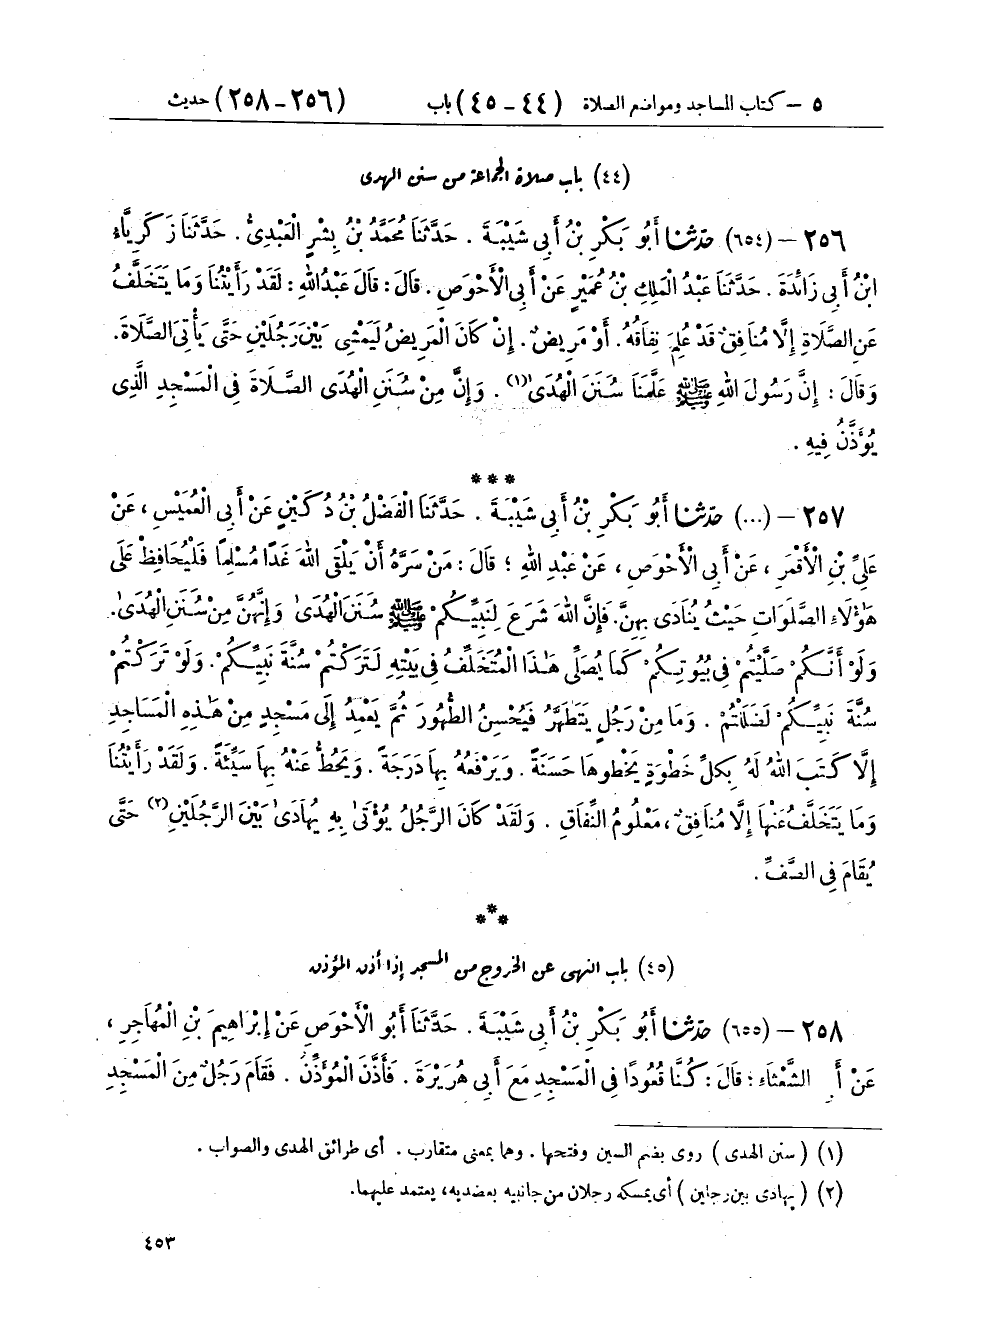 ٥ – كتاب المساجد ومواضع الصلاة (٤٤ – ٤٥) باب (٢٥٦ – ٢٥٨) حديث
(٤٤) باب صلاة الجماعة من سنن الهدى
٢٥٦ – (٦٥٤) حَدَّثَنَا أَبُو بَكْرِ بْنُ أَبِي شَيْبَةَ . حَدَّثَنَا مُحَمَّدُ بْنُ بِشْرٍ الْعَبْدِىُّ . حَدَّثَنَا زَكَرِيَّاءُ
ابْنُ أَبِي زَائِدَةَ . حَدَّثَنَا عَبْدُ الْمَلِكِ بْنُ عُمَيْرٍ عَنْ أَبِي الْأَحْوَصِ . قَالَ : قَالَ عَبْدُ اللهِ : لَقَدْ رَأَيْتُنَا وَمَا يَتَخَلَّفُ
عَنِ الصَّلَاةِ إِلَّا مُنَافِقٌ قَدْ عُلِمَ نِفَاقُهُ . أَوْ مَرِيضٌ . إِنْ كَانَ الْمَرِيضُ لَيَمْشِى بَيْنَ رَجُلَيْنِ حَتَّى يَأْتِىَ الصَّلَاةَ .
وَقَالَ : إِنَّ رَسُولَ اللهِ ﷺ عَلَّمَنَا سُنَنَ الْهُدَى (١) . وَإِنَّ مِنْ سُنَنِ الْهُدَى الصَّلَاةَ فِي الْمَسْجِدِ الَّذِى
يُؤَذَّنُ فِيهِ .
* * *
٢٥٧ – (...) حَدَّثَنَا أَبُو بَكْرِ بْنُ أَبِي شَيْبَةَ . حَدَّثَنَا الْفَضْلُ بْنُ دُكَيْنٍ عَنْ أَبِي الْعُمَيْسِ ، عَنْ
عَلِىِّ بْنِ الْأَقْمَرِ ، عَنْ أَبِي الْأَحْوَصِ ، عَنْ عَبْدِ اللهِ ؛ قَالَ : مَنْ سَرَّهُ أَنْ يَلْقَى اللهَ غَدًا مُسْلِمًا فَلْيُحَافِظْ عَلَى
هَؤُلَاءِ الصَّلَوَاتِ حَيْثُ يُنَادَى بِهِنَّ . فَإِنَّ اللهَ شَرَعَ لِنَبِيِّكُمْ ﷺ سُنَنَ الْهُدَى وَإِنَّهُنَّ مِنْ سُنَنِ الْهُدَى .
وَلَوْ أَنَّكُمْ صَلَّيْتُمْ فِي بُيُوتِكُمْ كَمَا يُصَلِّي هَذَا الْمُتَخَلِّفُ فِي بَيْتِهِ لَتَرَكْتُمْ سُنَّةَ نَبِيِّكُمْ . وَلَوْ تَرَكْتُمْ
سُنَّةَ نَبِيِّكُمْ لَضَلَلْتُمْ . وَمَا مِنْ رَجُلٍ يَتَطَهَّرُ فَيُحْسِنُ الطُّهُورَ ثُمَّ يَعْمِدُ إِلَى مَسْجِدٍ مِنْ هَذِهِ الْمَسَاجِدِ
إِلَّا كَتَبَ اللهُ لَهُ بِكُلِّ خَطْوَةٍ يَخْطُوهَا حَسَنَةً . وَيَرْفَعُهُ بِهَا دَرَجَةً . وَيَحُطُّ عَنْهُ بِهَا سَيِّئَةً . وَلَقَدْ رَأَيْتُنَا
وَمَا يَتَخَلَّفُ عَنْهَا إِلَّا مُنَافِقٌ ، مَعْلُومُ النِّفَاقِ . وَلَقَدْ كَانَ الرَّجُلُ يُؤْتَى بِهِ يُهَادَى بَيْنَ الرَّجُلَيْنِ (٢) حَتَّى
يُقَامَ فِي الصَّفِّ .
* * *
(٤٥) باب النهى عن الخروج من المسجد إذا أذن المؤذن
٢٥٨ – (٦٥٥) حَدَّثَنَا أَبُو بَكْرِ بْنُ أَبِي شَيْبَةَ . حَدَّثَنَا أَبُو الْأَحْوَصِ عَنْ إِبْرَاهِيمَ بْنِ الْمُهَاجِرِ ،
عَنْ أَبِي الشَّعْثَاءِ ؛ قَالَ : كُنَّا قُعُودًا فِي الْمَسْجِدِ مَعَ أَبِي هُرَيْرَةَ . فَأَذَّنَ الْمُؤَذِّنُ . فَقَامَ رَجُلٌ مِنَ الْمَسْجِدِ
(١) ( سنن الهدى ) روى بضم السين وفتحها . وهما بمعنى متقارب . أى طرائق الهدى والصواب .
(٢) ( يهادى بين رجلين ) أى يمسكه رجلان من جانبيه بعضديه، يعتمد عليهما.
٤٥٣